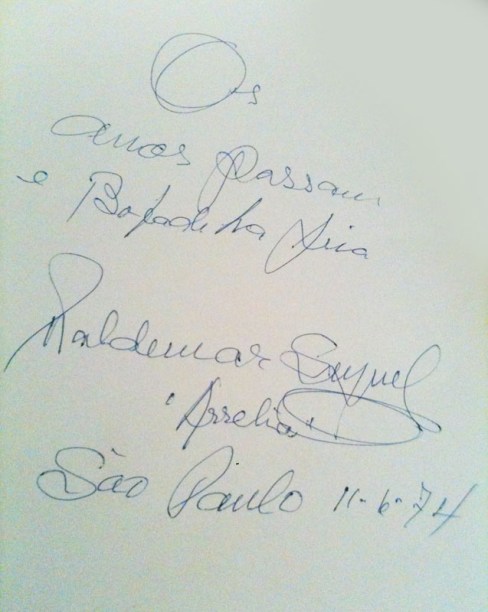 Os
anos passam
e Bofadinha fica
Waldemar Seyssel
"Arrelia"
São Paulo 11-6-74